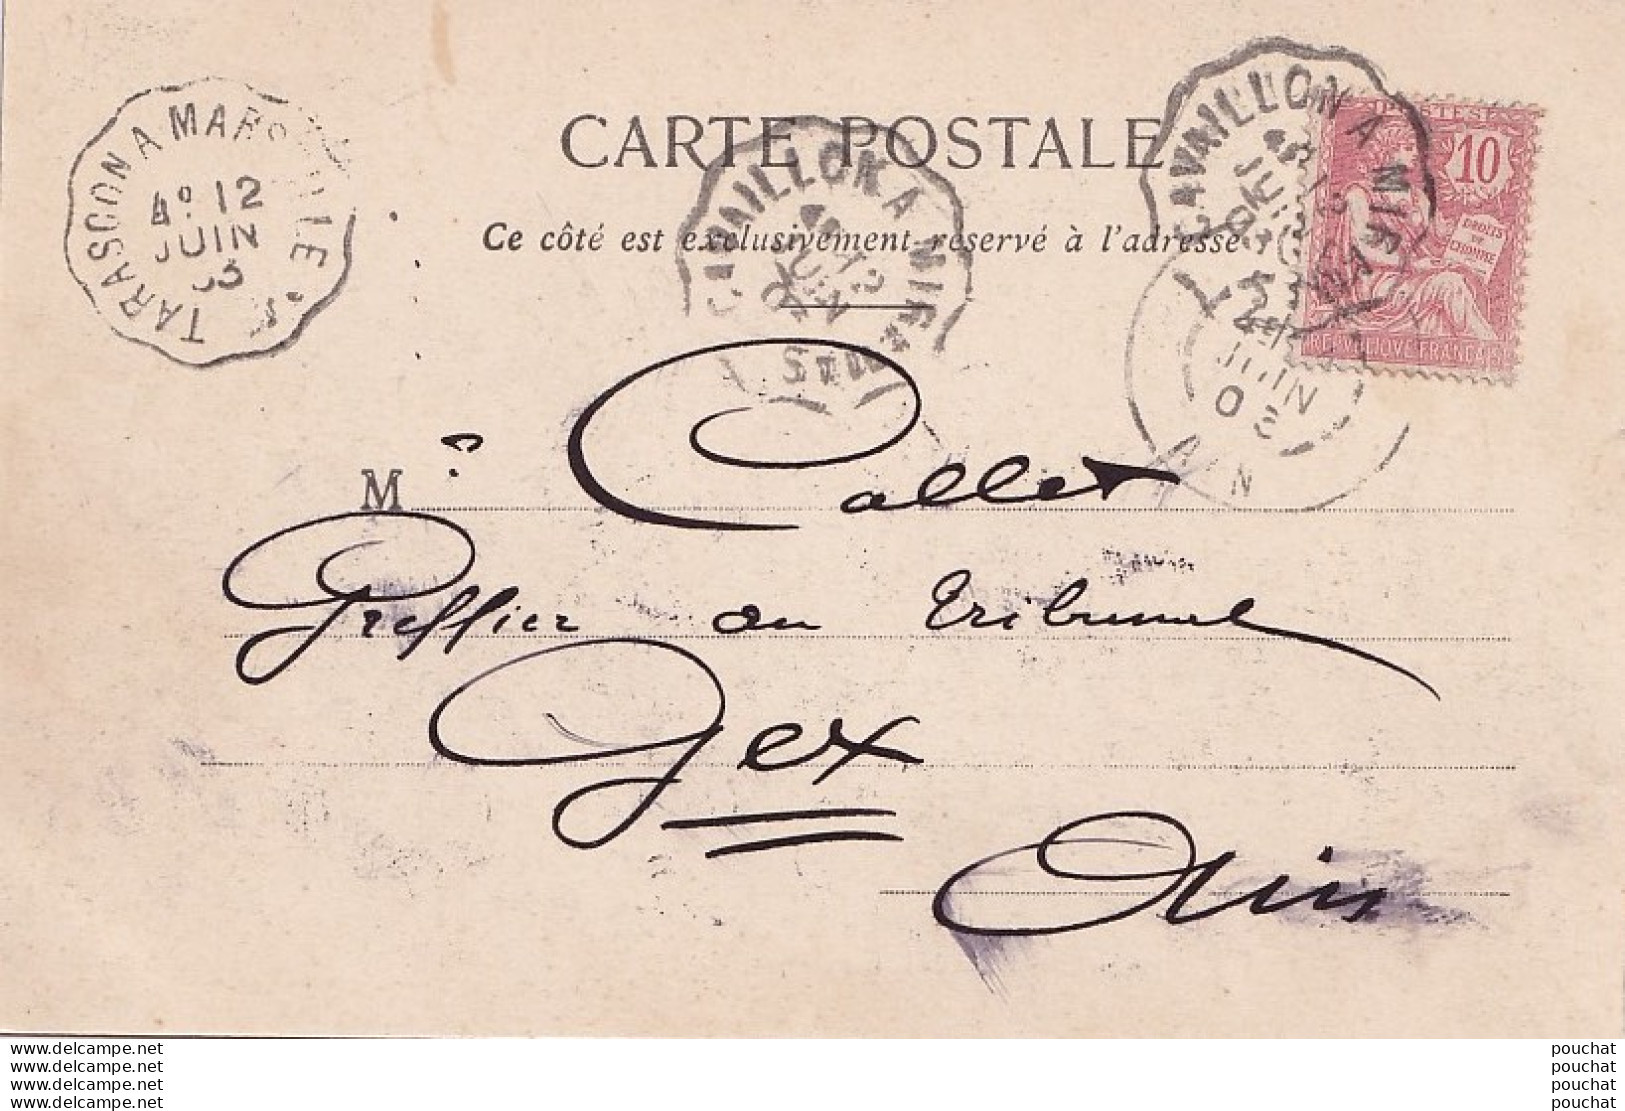 CARTE POSTALE
Ce côté est exclusivement réservé à l'adresse
TARASCON A MARSEILLE
4° 12
JUIN
03
CAVAILLON A MIRAMAS
JUIN
CAVAILLON A MIRAMAS
JUIN
POSTES
10
DROITS
DE
L'HOMME
REPUBLIQUE FRANÇAISE
JUIN
03
AIN
Mr Callet
Greffier au tribunal
Gex
Ain
www.delcampe.net
www.delcampe.net
www.delcampe.net
www.delcampe.net
pouchat
pouchat
pouchat
pouchat